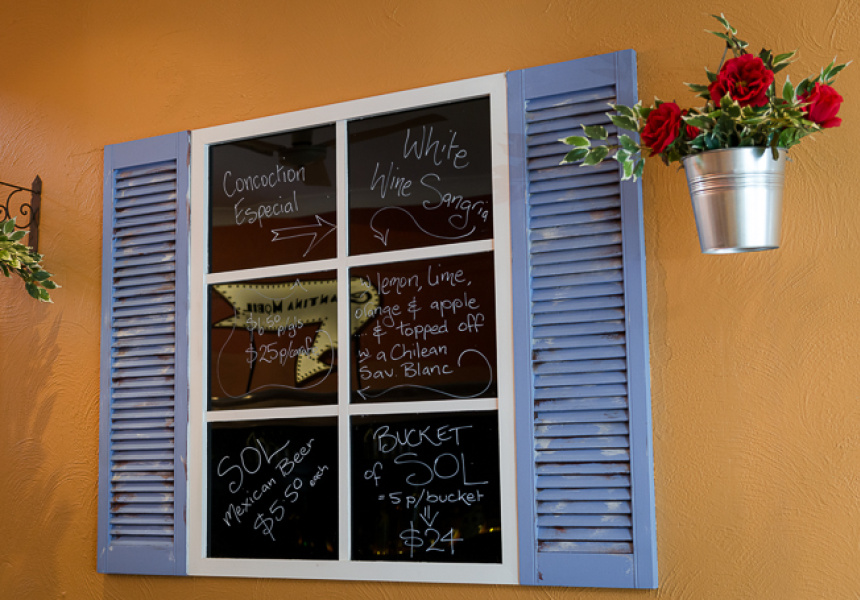 Concoction
Especial
White
Wine Sangria
$6.50 p/gls
$25 p/caraf
w lemon, lime,
orange & apple
... & topped off
w a Chilean
Sav. Blanc
SOL
Mexican Beer
$5.50 each
BUCKET
of SOL
= 5 p/bucket
$24